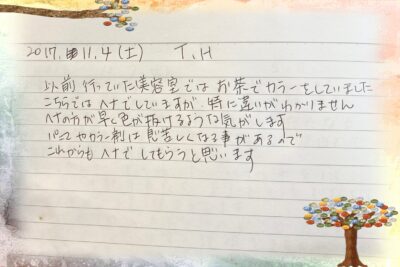 2017. 11.4 (土) T.H
以前行っていた美容室ではお茶でカラーをしていました
こちらではヘナでしていますが、特に違いがわかりません
ヘナの方が早く色が抜けるような気がします
パーマやカラー剤は息苦しくなる事があるので
これからもヘナでしてもらうと思います